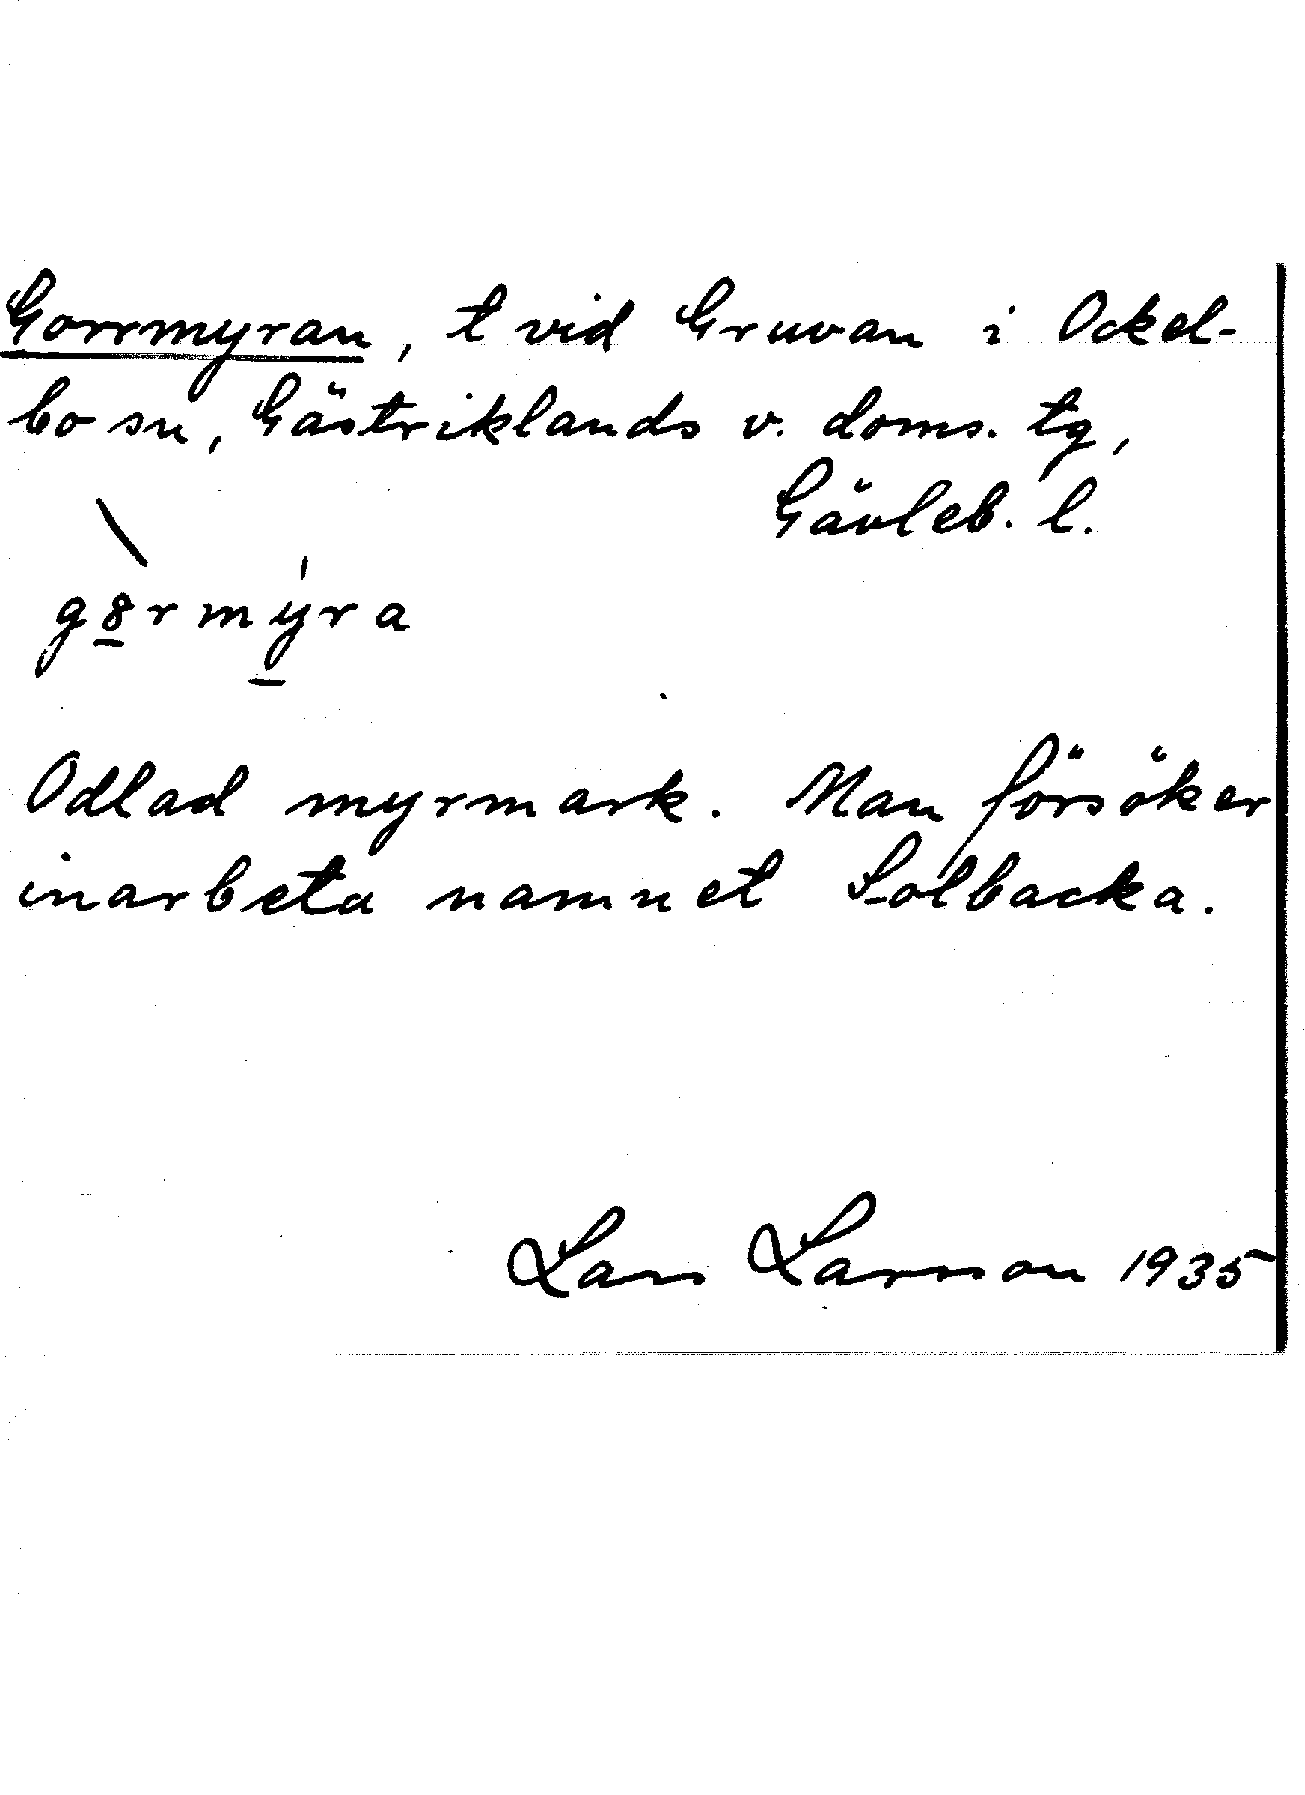 Gorrmyran, t vid Gruvan i Ockel-
bo sn, Gästriklands v. doms. tg,
Gävleb. l.
g8rmyra
Odlad myrmark. Man försöker
inarbeta namnet Solbacka.
Lars Larsson 1935